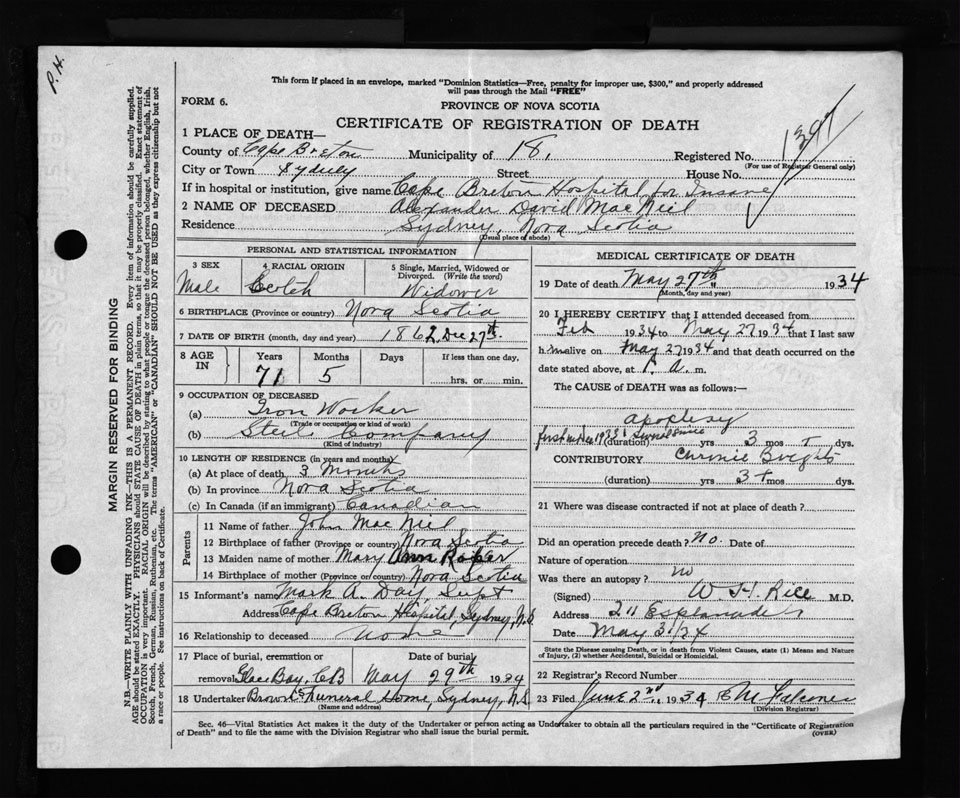 P. H.
This form if placed in an envelope, marked "Dominion Statistics—Free, penalty for improper use, $300," and properly addressed
will pass through the Mail "FREE"
FORM 6.
PROVINCE OF NOVA SCOTIA
CERTIFICATE OF REGISTRATION OF DEATH
1397
1 PLACE OF DEATH—
County of Cape Breton Municipality of 18. Registered No.
(For use of Registrar General only)
City or Town Sydney Street House No.
If in hospital or institution, give name Cape Breton Hospital for Insane
2 NAME OF DECEASED Alexander David MacNeil
Residence Sydney, Nova Scotia
(Usual place of abode)
PERSONAL AND STATISTICAL INFORMATION
3 SEX
Male
4 RACIAL ORIGIN
Scotch
5 Single, Married, Widowed or
Divorced. (Write the word)
Widower
6 BIRTHPLACE (Province or country) Nova Scotia
7 DATE OF BIRTH (month, day and year) 1862 Dec 27th.
8 AGE IN
Years Months Days If less than one day.
71 5 hrs. or min.
9 OCCUPATION OF DECEASED
(a) Iron Worker
(Trade or occupation or kind of work)
(b) Steel Company
(Kind of industry)
10 LENGTH OF RESIDENCE (in years and months)
(a) At place of death 3 Months
(b) In province Nova Scotia
(c) In Canada (if an immigrant) Canadian
Parents
11 Name of father John MacNeil
12 Birthplace of father (Province or country) Nova Scotia
13 Maiden name of mother Mary Ann Roper
14 Birthplace of mother (Province or country) Nova Scotia
15 Informant's name Mark A. Day, Supt
Address Cape Breton Hospital, Sydney, N.S.
16 Relationship to deceased None
17 Place of burial, cremation or Date of burial
removal Glace Bay, C.B May 29th 1934
18 Undertaker Brown's Funeral Home, Sydney, N.S.
(Name and address)
MEDICAL CERTIFICATE OF DEATH
19 Date of death May 27th 1934
(Month, day and year)
20 I HEREBY CERTIFY that I attended deceased from
Feb 1934 to May 27 1934 that I last saw
h im alive on May 27 1934 and that death occurred on the
date stated above, at 1. a. m.
The CAUSE of DEATH was as follows:—
apoplexy
(duration) yrs 3 mos dys.
CONTRIBUTORY Chronic Brights
(duration) 3+ yrs mos dys.
21 Where was disease contracted if not at place of death?
Did an operation precede death? No. Date of
Nature of operation
Was there an autopsy? no
(Signed) W H. Rice M.D.
Address 211 Esplanade
Date May 31/34
State the Disease causing Death, or in death from Violent Causes, state (1) Means and Nature
of Injury, (2) whether Accidental, Suicidal or Homicidal.
22 Registrar's Record Number
23 Filed June 2nd, 1934
(Division Registrar)
Sec. 46—Vital Statistics Act makes it the duty of the Undertaker or person acting as Undertaker to obtain all the particulars required in the "Certificate of Registration
of Death" and to file the same with the Division Registrar who shall issue the burial permit.
(OVER)
MARGIN RESERVED FOR BINDING
N.B.—WRITE PLAINLY WITH UNFADING INK—THIS IS A PERMANENT RECORD. Every item of information should be carefully supplied.
AGE should be stated EXACTLY. PHYSICIANS should STATE CAUSE OF DEATH in plain terms, so that it may be properly classified. Exact statement of
OCCUPATION is very important. RACIAL ORIGIN will be described by stating to what people or tongue the deceased person belonged, whether English, Irish,
Scotch, French, German, Russian, Ruthenian, etc. The terms "AMERICAN" or "CANADIAN" SHOULD NOT BE USED as they express citizenship but not
a race or people. See instructions on back of Certificate.